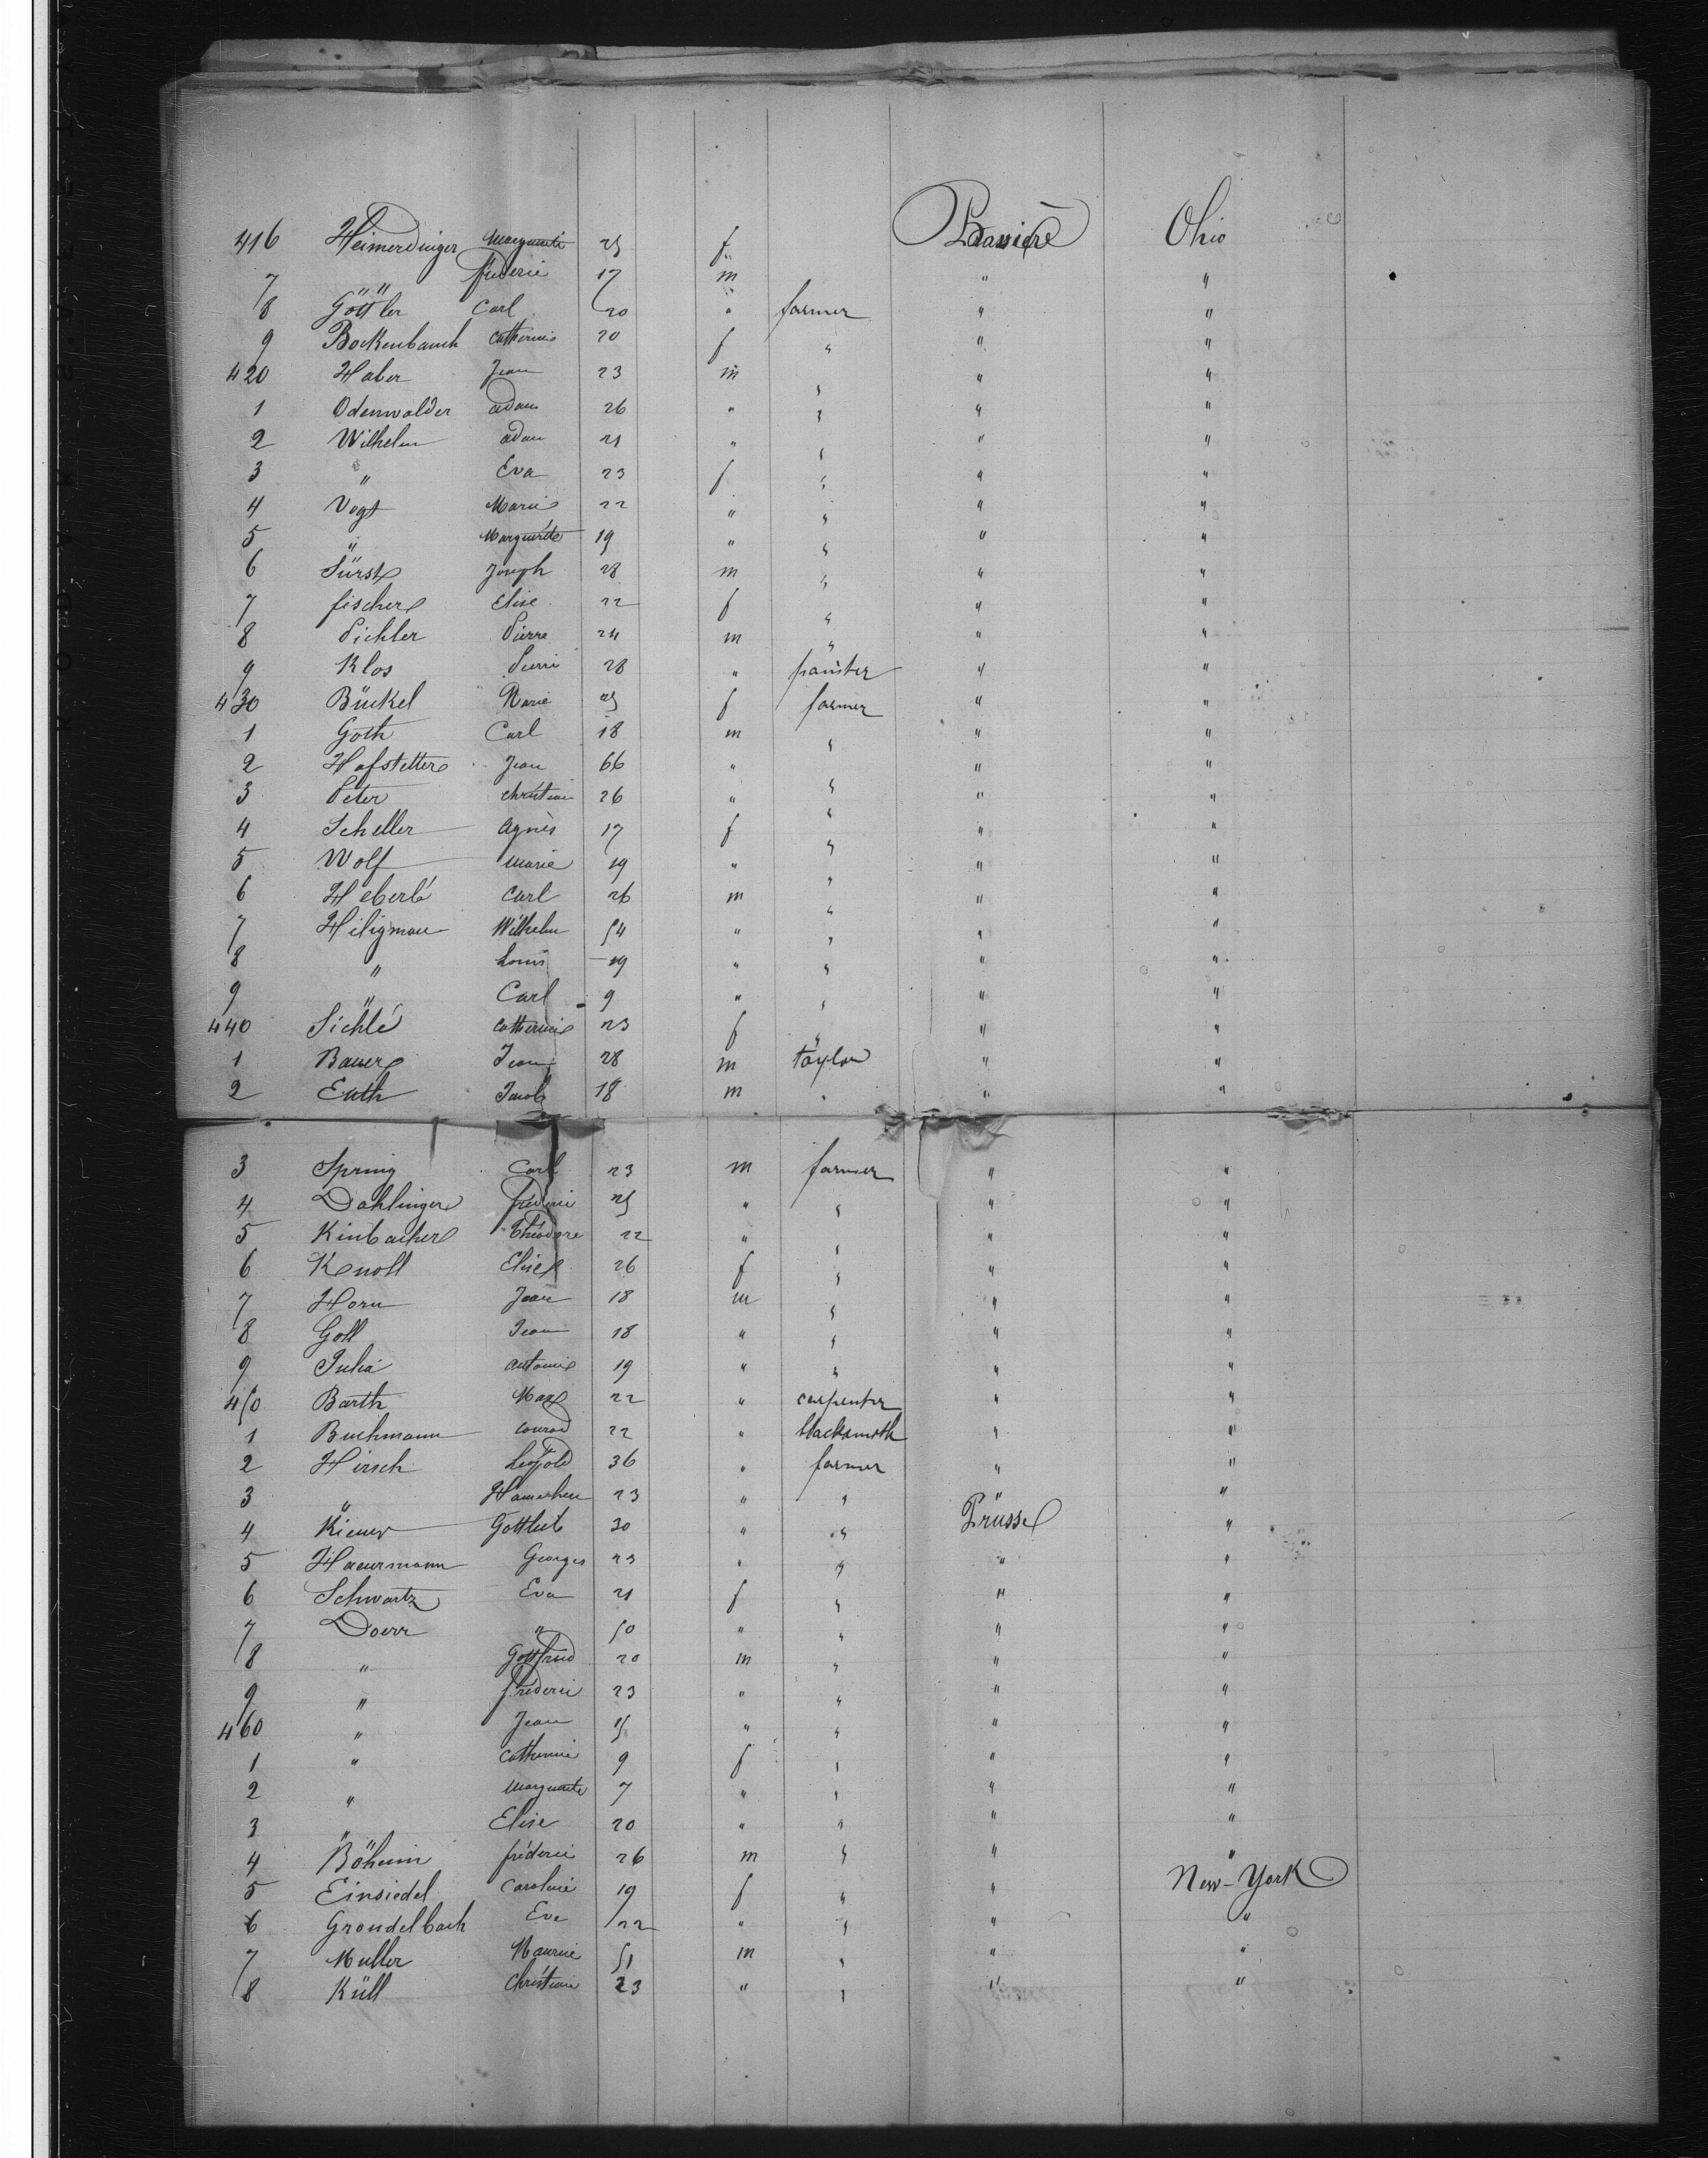 416 Heimerdinger Marguerite 25 f Bavière Ohio
7 " " fréderic 17 m " "
8 Göttler Carl 20 " farmer " "
9 Bockenbauch Catherine 20 f " " "
420 Haber Jean 23 m " " "
1 Odenwalder adam 26 " " " "
2 Wilhelm adam 21 " " " "
3 " Eva 23 f " " "
4 Vogt Marie 22 " " " "
5 " Marguerite 19 " " " "
6 Fürst Joseph 28 m " " "
7 fischer Elise 22 f " " "
8 Pichler Pierre 24 m " " "
9 Klos Pierre 28 " painter " "
430 Bückel Marie 25 f farmer " "
1 Goth Carl 18 m " " "
2 Hofstetter Jean 66 " " " "
3 Peter christian 26 " " " "
4 Scheller Agnès 17 f " " "
5 Wolf Marie 19 " " " "
6 Heberlé Carl 26 m " " "
7 Hiligman Wilhelm 54 " " " "
8 " Louis 19 " " " "
9 " Carl 9 " " " "
440 Sichlé Catherine 23 f " " "
1 Bauer Jean 28 m taylor " "
2 Euth Jacob 18 m " " "
3 Spring Carl 23 m farmer " "
4 Dahlinger fréderic 25 " " " "
5 Kinbacher Théodore 22 " " " "
6 Knoll Elise 26 f " " "
7 Horn Jean 18 m " " "
8 Goll Jean 18 " " " "
9 Julia antoine 19 " " " "
450 Barth Max 22 " carpenter " "
1 Buchmann conrad 22 " blacksmith " "
2 Hirsch Leopold 36 " farmer " "
3 " 23 " " " "
4 Kiener Gottlieb 30 " " Prusse "
5 Haeurmann Georges 23 " " " "
6 Schwartz Eva 21 f " " "
7 Doerr " 50 " " " "
8 " Gottfried 20 m " " "
9 " fréderic 23 " " " "
460 " Jean 15 " " " "
1 " Catherine 9 f " " "
2 " Marguerite 7 " " " "
3 " Elise 20 " " " "
4 Böheim fréderic 26 m " " "
5 Einsiedel Caroline 19 f " " New-York
6 Grondelbach Eve 22 " " " "
7 Muller Maurice 51 m " " "
8 Küll Christian 23 " " " "